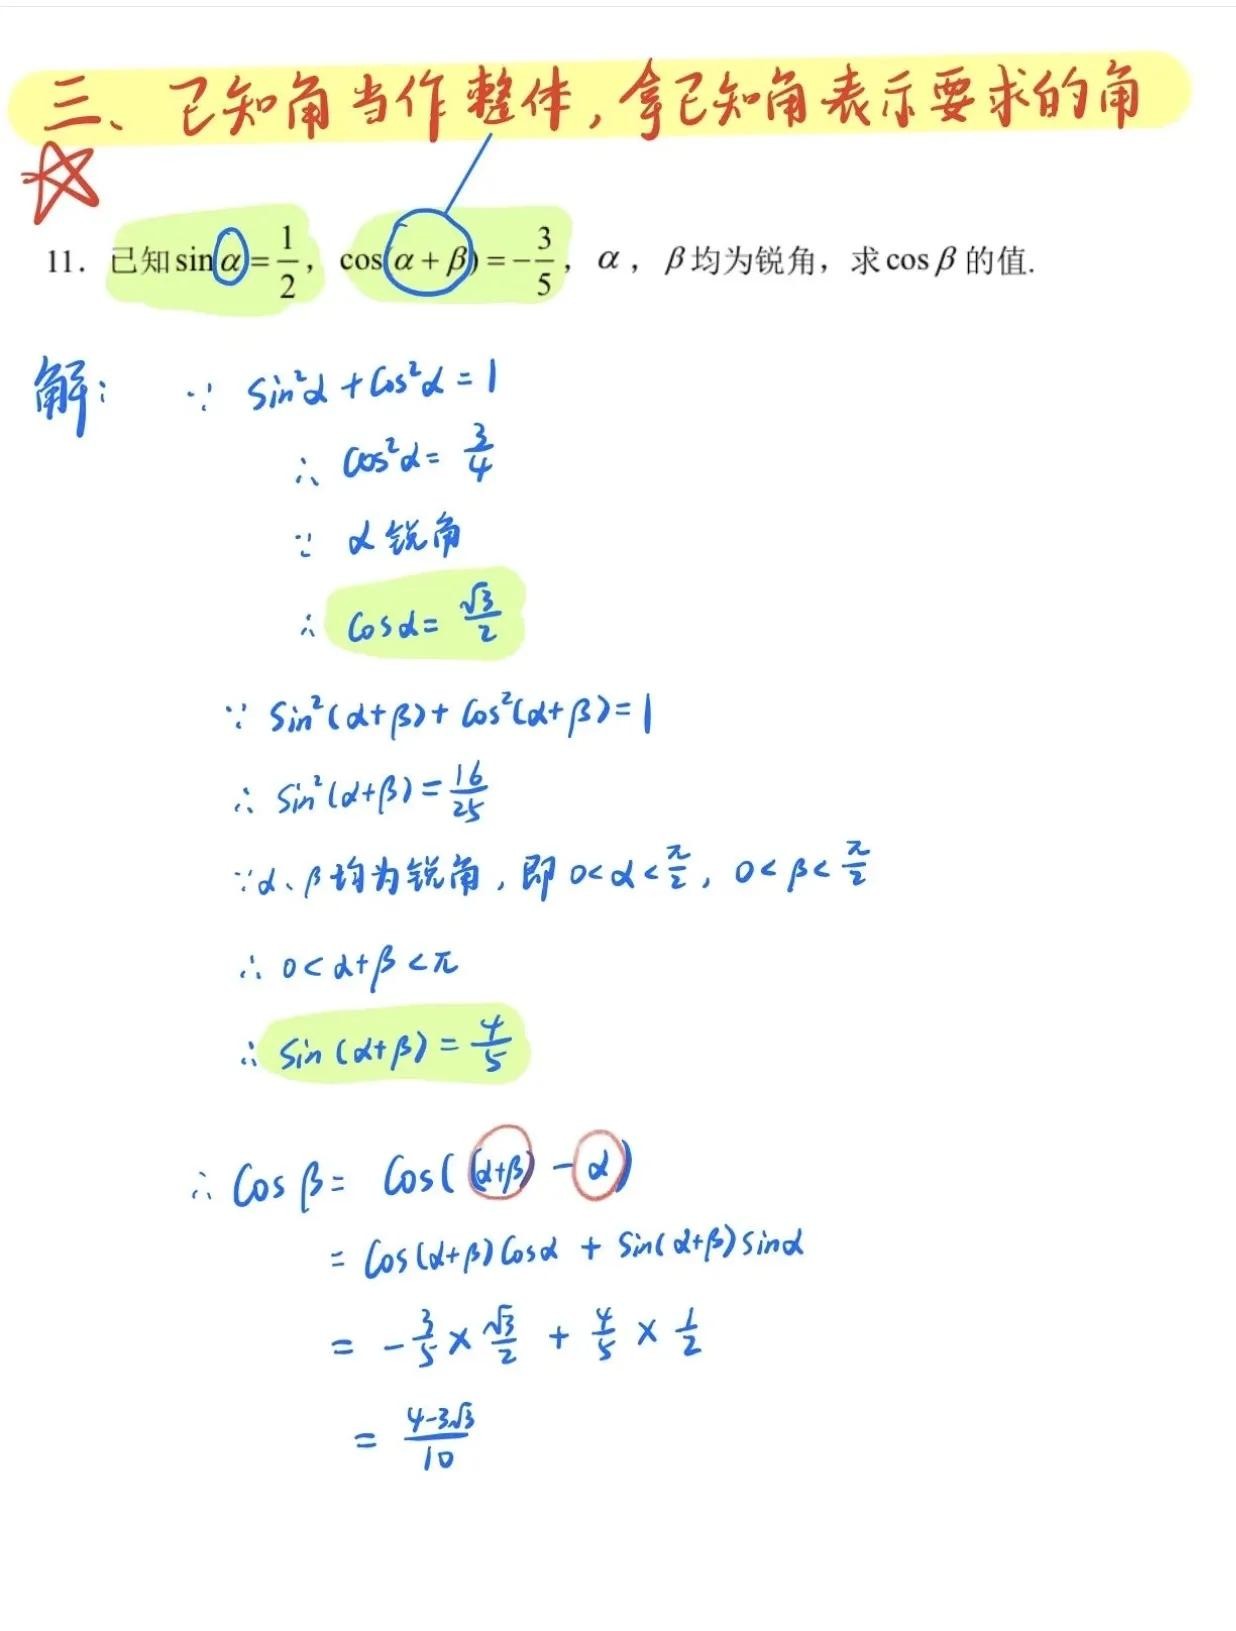 三、已知角当作整体，拿已知角表示要求的角
11. 已知 sin α = 1/2， cos(α + β) = -3/5， α， β 均为锐角，求 cos β 的值.
解： ∵ sin²α + cos²α = 1
∴ cos²α = 3/4
∵ α 锐角
∴ cosα = √3/2
∵ sin²(α+β) + cos²(α+β) = 1
∴ sin²(α+β) = 16/25
∵ α、β 均为锐角，即 0<α<π/2， 0<β<π/2
∴ 0<α+β<π
∴ sin(α+β) = 4/5
∴ cos β = cos((α+β) - α)
= cos(α+β)cosα + sin(α+β)sinα
= -3/5 × √3/2 + 4/5 × 1/2
= (4-3√3)/10